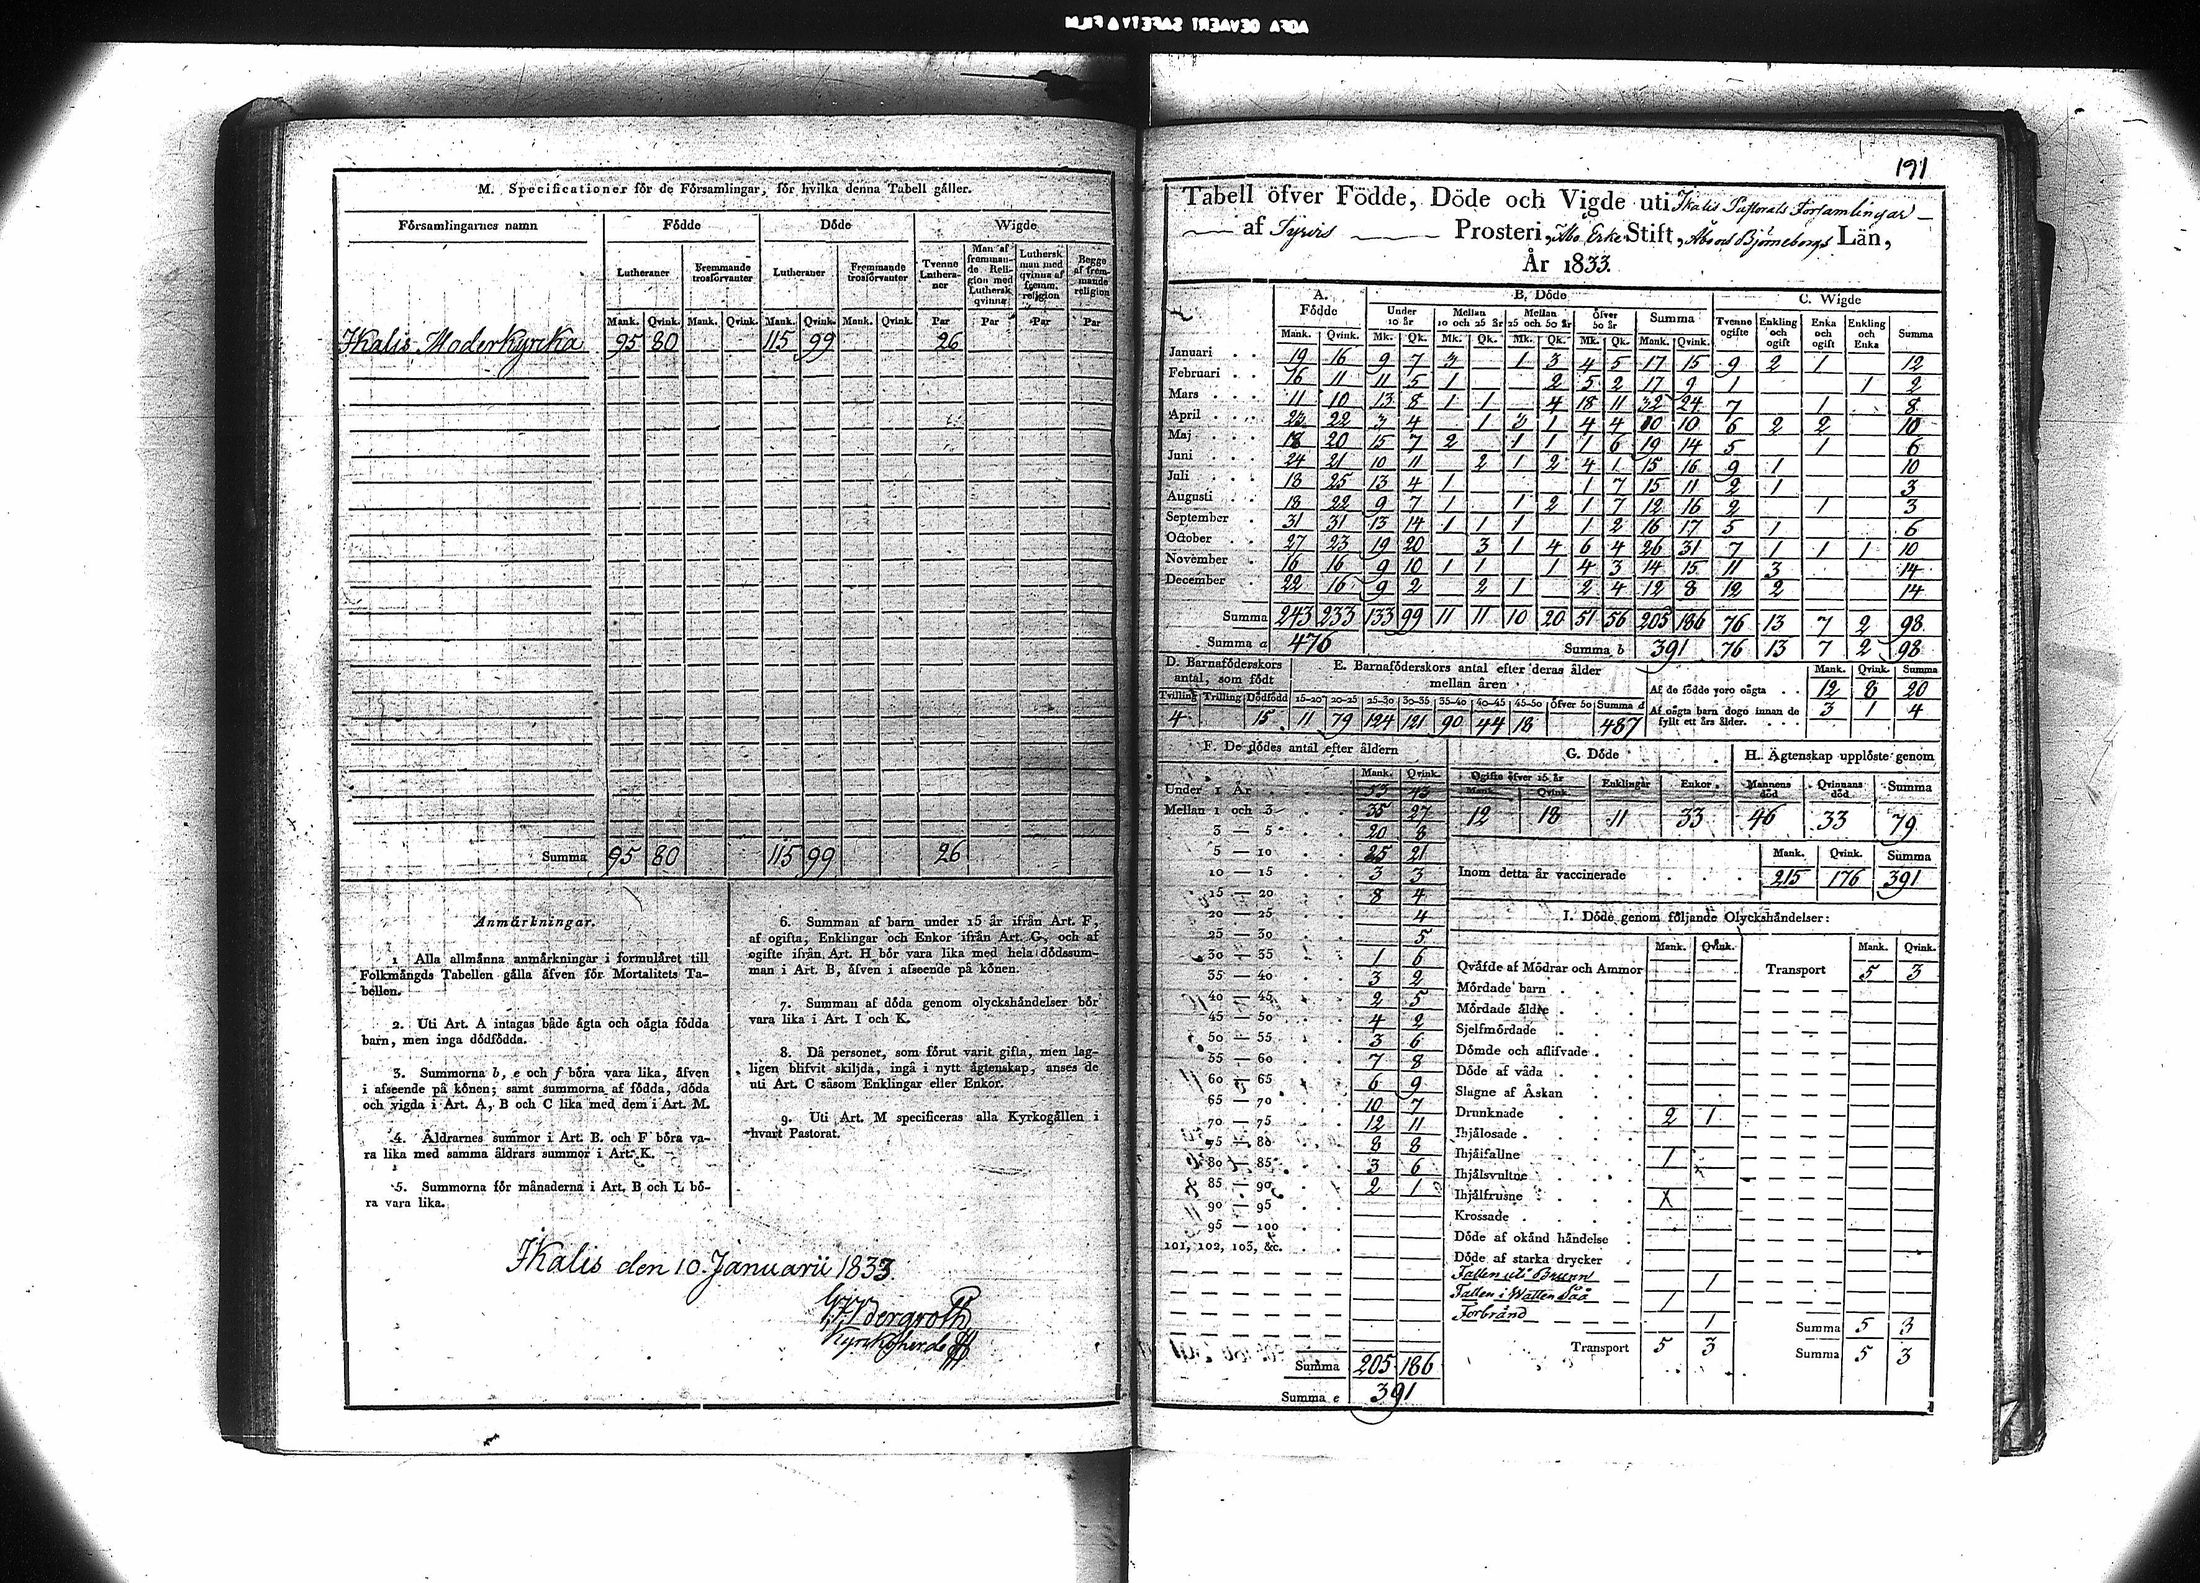 AGFA GEVAERT SAFETY FILM
M. Specificationer för de Församlingar, för hvilka denna Tabell gäller.
Församlingarnes namn Födde Döde Wigde
Lutheraner Fremmande trosförvanter Lutheraner Fremmande trosförvanter Tvenne Lutheraner Man af fremmande Religion med Luthersk qvinna Luthersk man med qvinna af fremm. religion Begge af fremmande religion
Mank. Qvink. Mank. Qvink. Mank. Qvink. Mank. Qvink. Par Par Par Par
Ikalis Moderkyrka 95 80 115 99 26
Summa 95 80 115 99 26
Anmärkningar.
1 Alla allmänna anmärkningar i formuläret till
Folkmängds Tabellen gälla äfven för Mortalitets Ta-
bellen.
2. Uti Art. A intagas både ägta och oägta födda
barn, men inga dödfödda.
3. Summorna b, e och f böra vara lika, äfven
i afseende på könen; samt summorna af födda, döda
och vigda i Art. A, B och C lika med dem i Art. M.
4. Åldrarnes summor i Art. B. och F böra va-
ra lika med samma åldrars summor i Art. K.
5. Summorna för månaderna i Art. B och L bö-
ra vara lika.
6. Summan af barn under 15 år ifrån Art. F,
af ogifta, Enklingar och Enkor ifrån Art. G, och af
ogifte ifrån Art. H bör vara lika med hela dödssum-
man i Art. B, äfven i afseende på könen.
7. Summan af döda genom olyckshändelser bör
vara lika i Art. I och K.
8. Då personer, som förut varit gifta, men lag-
ligen blifvit skiljda, ingå i nytt ägtenskap, anses de
uti Art. C såsom Enklingar eller Enkor.
9. Uti Art. M specificeras alla Kyrkogällen i
hvart Pastorat.
Ikalis den 10. Januarii 1833
Bergroth
Kyrkoherde
191
Tabell öfver Födde, Döde och Vigde uti Ikalis Pastorats Församlingar
af Tyrvis Prosteri, Åbo Erke Stift, Åbo och Björneborgs Län,
År 1833.
A. Födde B. Döde C. Wigde
Under 10 år Mellan 10 och 25 år Mellan 25 och 50 år Öfver 50 år Summa Tvenne ogifte Enkling och ogift Enka och ogift Enkling och Enka Summa
Mank. Qvink. Mk. Qk. Mk. Qk. Mk. Qk. Mk. Qk. Mank. Qvink.
Januari 19 16 9 7 3 1 3 4 5 17 15 9 2 1 12
Februari 16 11 11 5 1 2 5 2 17 9 1 1 2
Mars 11 10 13 8 1 1 4 18 11 32 24 7 1 8
April 23 22 3 4 1 3 1 4 4 10 10 6 2 2 10
Maj 18 20 15 7 2 1 1 1 6 19 14 5 1 6
Juni 24 21 10 11 2 1 2 4 1 15 16 9 1 10
Juli 18 25 13 4 1 1 7 15 11 2 1 3
Augusti 18 22 9 7 1 1 2 1 7 12 16 2 1 3
September 31 31 13 14 1 1 1 1 2 16 17 5 1 6
October 27 23 19 20 3 1 4 6 4 26 31 7 1 1 1 10
November 16 16 9 10 1 1 1 4 3 14 15 11 3 14
December 22 16 9 2 2 1 2 4 12 8 12 2 14
Summa 243 233 133 99 11 11 10 20 51 56 205 186 76 13 7 2 98
Summa a 476 Summa b 391 76 13 7 2 98
D. Barnaföderskors antal, som födt
Tvilling Trilling Dödfödd
4 15
E. Barnaföderskors antal efter deras ålder
mellan åren
15-20 20-25 25-30 30-35 35-40 40-45 45-50 öfver 50 Summa d
11 79 124 121 90 44 18 487
Mank. Qvink. Summa
Af de födde voro oägta 12 8 20
Af oägta barn dogo innan de
fyllt ett års ålder. 3 1 4
F. De dödes antal efter åldern
Mank. Qvink.
Under 1 År 53 43
Mellan 1 och 3 35 27
3 — 5 20 8
5 — 10 25 21
10 — 15 3 3
15 — 20 8 4
20 — 25 4
25 — 30 5
30 — 35 1 6
35 — 40 3 2
40 — 45 2 5
45 — 50 4 2
50 — 55 3 6
55 — 60 7 8
60 — 65 6 9
65 — 70 10 7
70 — 75 12 11
75 — 80 8 8
80 — 85 3 6
85 — 90 2 1
90 — 95
95 — 100
101, 102, 103, &c.
Summa 205 186
Summa e 391
G. Döde
Ogifte öfver 15 år Enklingar Enkor
Mank. Qvink.
12 18 11 33
H. Ägtenskap upplöste genom
Mannens död Qvinnans död Summa
46 33 79
Mank. Qvink. Summa
Inom detta år vaccinerade 215 176 391
I. Döde genom följande Olyckshändelser:
Mank. Qvink. Mank. Qvink.
Qväfde af Mödrar och Ammor Transport 5 3
Mördade barn
Mördade äldre
Sjelfmördade
Dömde och aflifvade
Döde af våda
Slagne af Åskan
Drunknade 2 1
Ihjälosade
Ihjälfallne 1
Ihjälsvultne
Ihjälfrusne X
Krossade
Döde af okänd händelse
Döde af starka drycker
Fallen uti Brunn 1
Fallen i Watten Såå 1
Forbränd 1
Summa 5 3
Transport 5 3 Summa 5 3